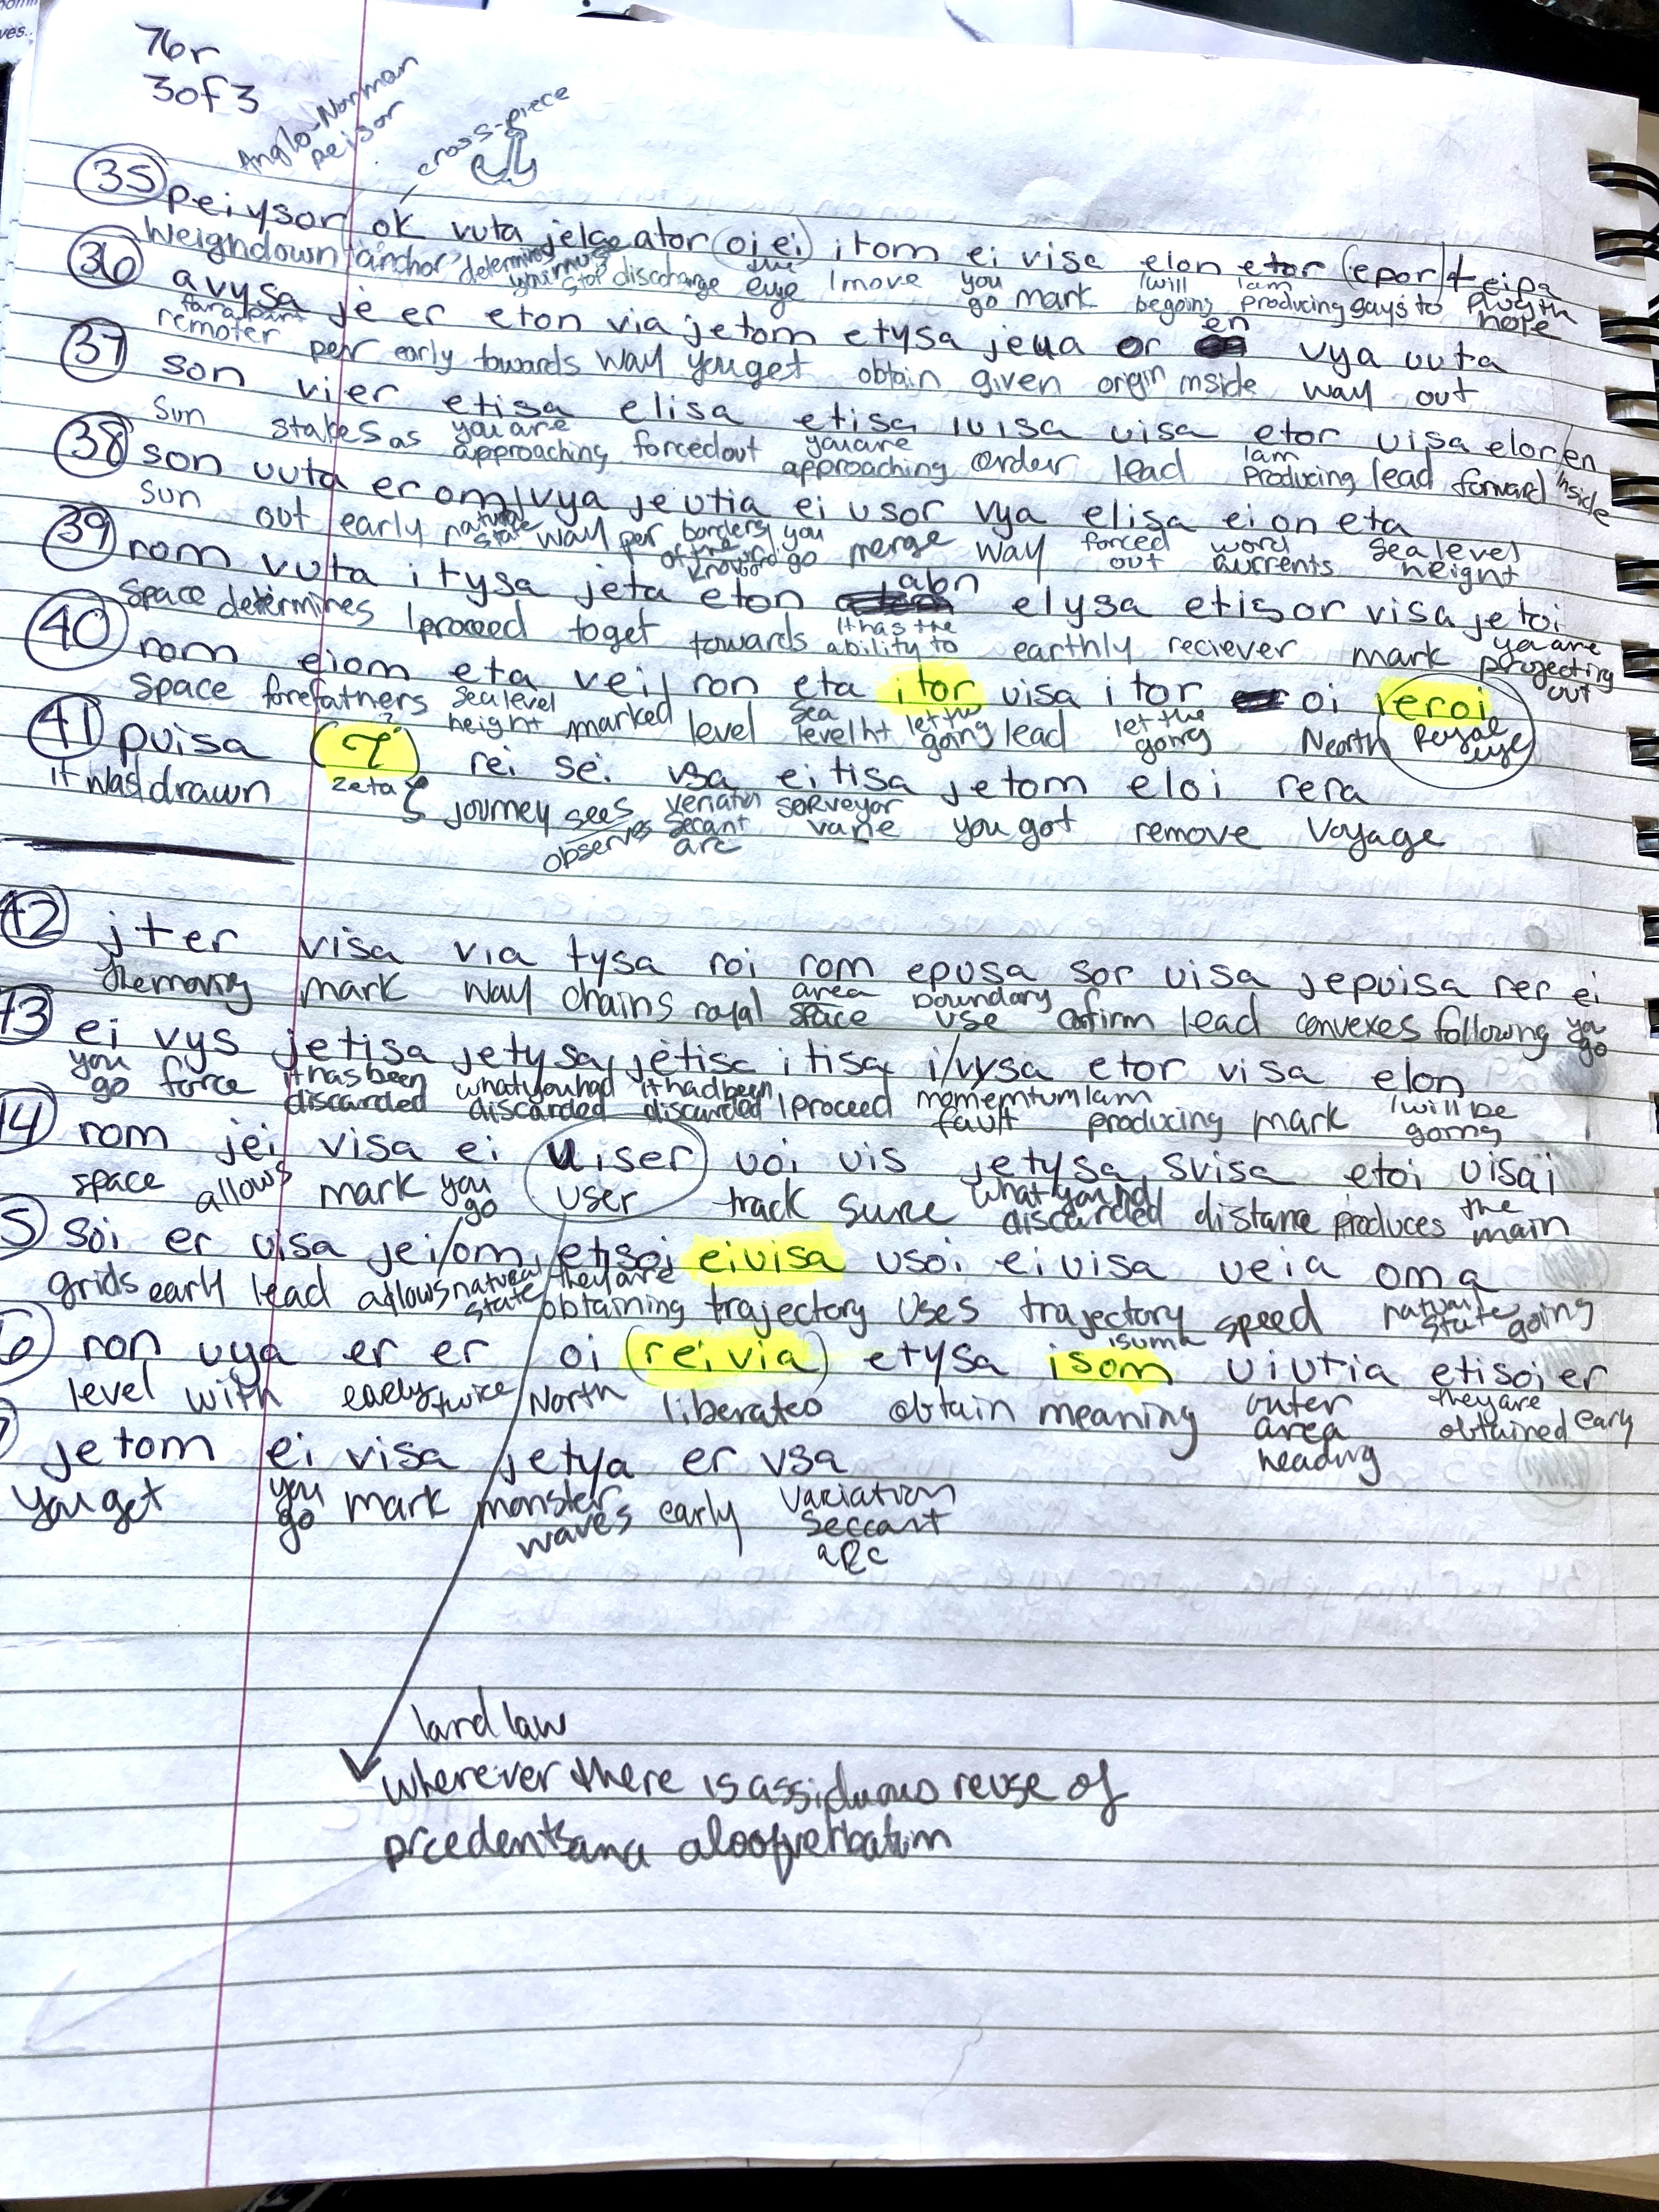 76r
3 of 3
Anglo-Norman
peisor
cross-piece
35 peiysor ok vuta jelceator oiei itom ei visa elon etor (epor) t eipa
Weighdown "anchor" determining you must stop discharge the eye I move you go mark I will begoing I am producing says to
36 avysa je er eton via jetom etysa jeua or en vya uuta
far apart
remoter per early towards way you get obtain given origin inside way out
37 son vier etisa elisa etisa uisa etor uisa elor/en
Sun stakes as you are approaching forced out you are approaching order lead I am producing lead forward inside
38 son uuta er om/vya je utia ei usor vya elisa ei on eta
Sun out early natural state way per borders of the known you go merge way forced out word currents sea level height
39 rom vuta itysa jeta eton abn elysa etisor visa jetoi
Space determines I proceed to get towards it has the ability to earthly reciever mark you are projecting out
40 rom eiom eta veil ron eta itor uisa itor oi reroi
Space forefathers sea level height marked level sea level ht let the going lead let the going North Royal eye
41 puisa rei sei vsa eitisa jetom eloi rera
it was drawn zeta ζ journey sees observes secant arc vane you got remove voyage
42 jter visa via tysa roi rom epusa sor uisa jepuisa rer ei
the moving mark way chains royal area space boundary use confirm lead convexes following you go
43 ei vys jetisa jetysa, jetisc itisa i/vysa etor visa elon
you go force it has been discarded what you had discarded it had been discarded I proceed momemtum I am fault producing mark I will be going
44 rom jei visa ei uiser uoi uis jetysa svisa etoi uisai
space allows mark you go user track sure what you had discarded distance produces the main
5 soi er uisa jei/om, etisoi eiuisa usoi eiuisa veia oma
grids early lead allows natural state they are obtaining trajectory uses trajectory speed natural state going
6 ron uya er er oi (reivia) etysa isom uiutia etisoier
isuma
level with early twice North liberated obtain meaning outer area heading they are obtained early
7 jetom ei visa jetya er vsa
You get you go mark monster waves early variation seccant aRc
land law
wherever there is assiduous reuse of